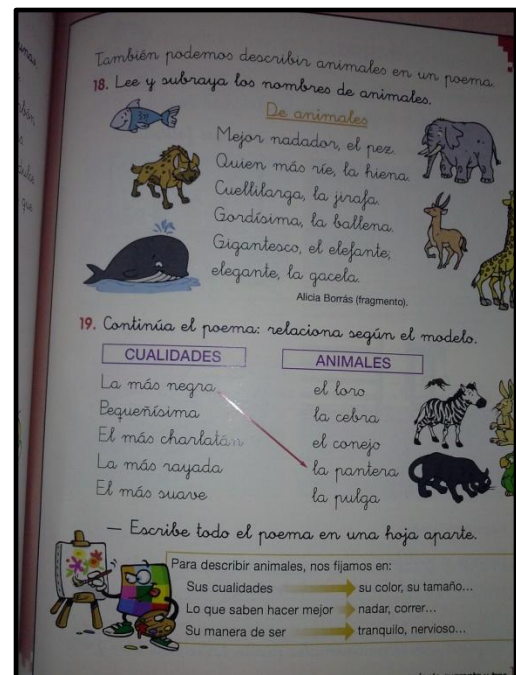 También podemos describir animales en un poema.
18. Lee y subraya los nombres de animales.
De animales
Mejor nadador, el pez.
Quien más ríe, la hiena.
Cuellilarga, la jirafa.
Gordísima, la ballena.
Gigantesco, el elefante;
elegante, la gacela.
Alicia Borrás (fragmento).
19. Continúa el poema: relaciona según el modelo.
CUALIDADES ANIMALES
La más negra el loro
Pequeñísima la cebra
El más charlatán el conejo
La más rayada la pantera
El más suave la pulga
— Escribe todo el poema en una hoja aparte.
Para describir animales, nos fijamos en:
Sus cualidades su color, su tamaño...
Lo que saben hacer mejor nadar, correr...
Su manera de ser tranquilo, nervioso...